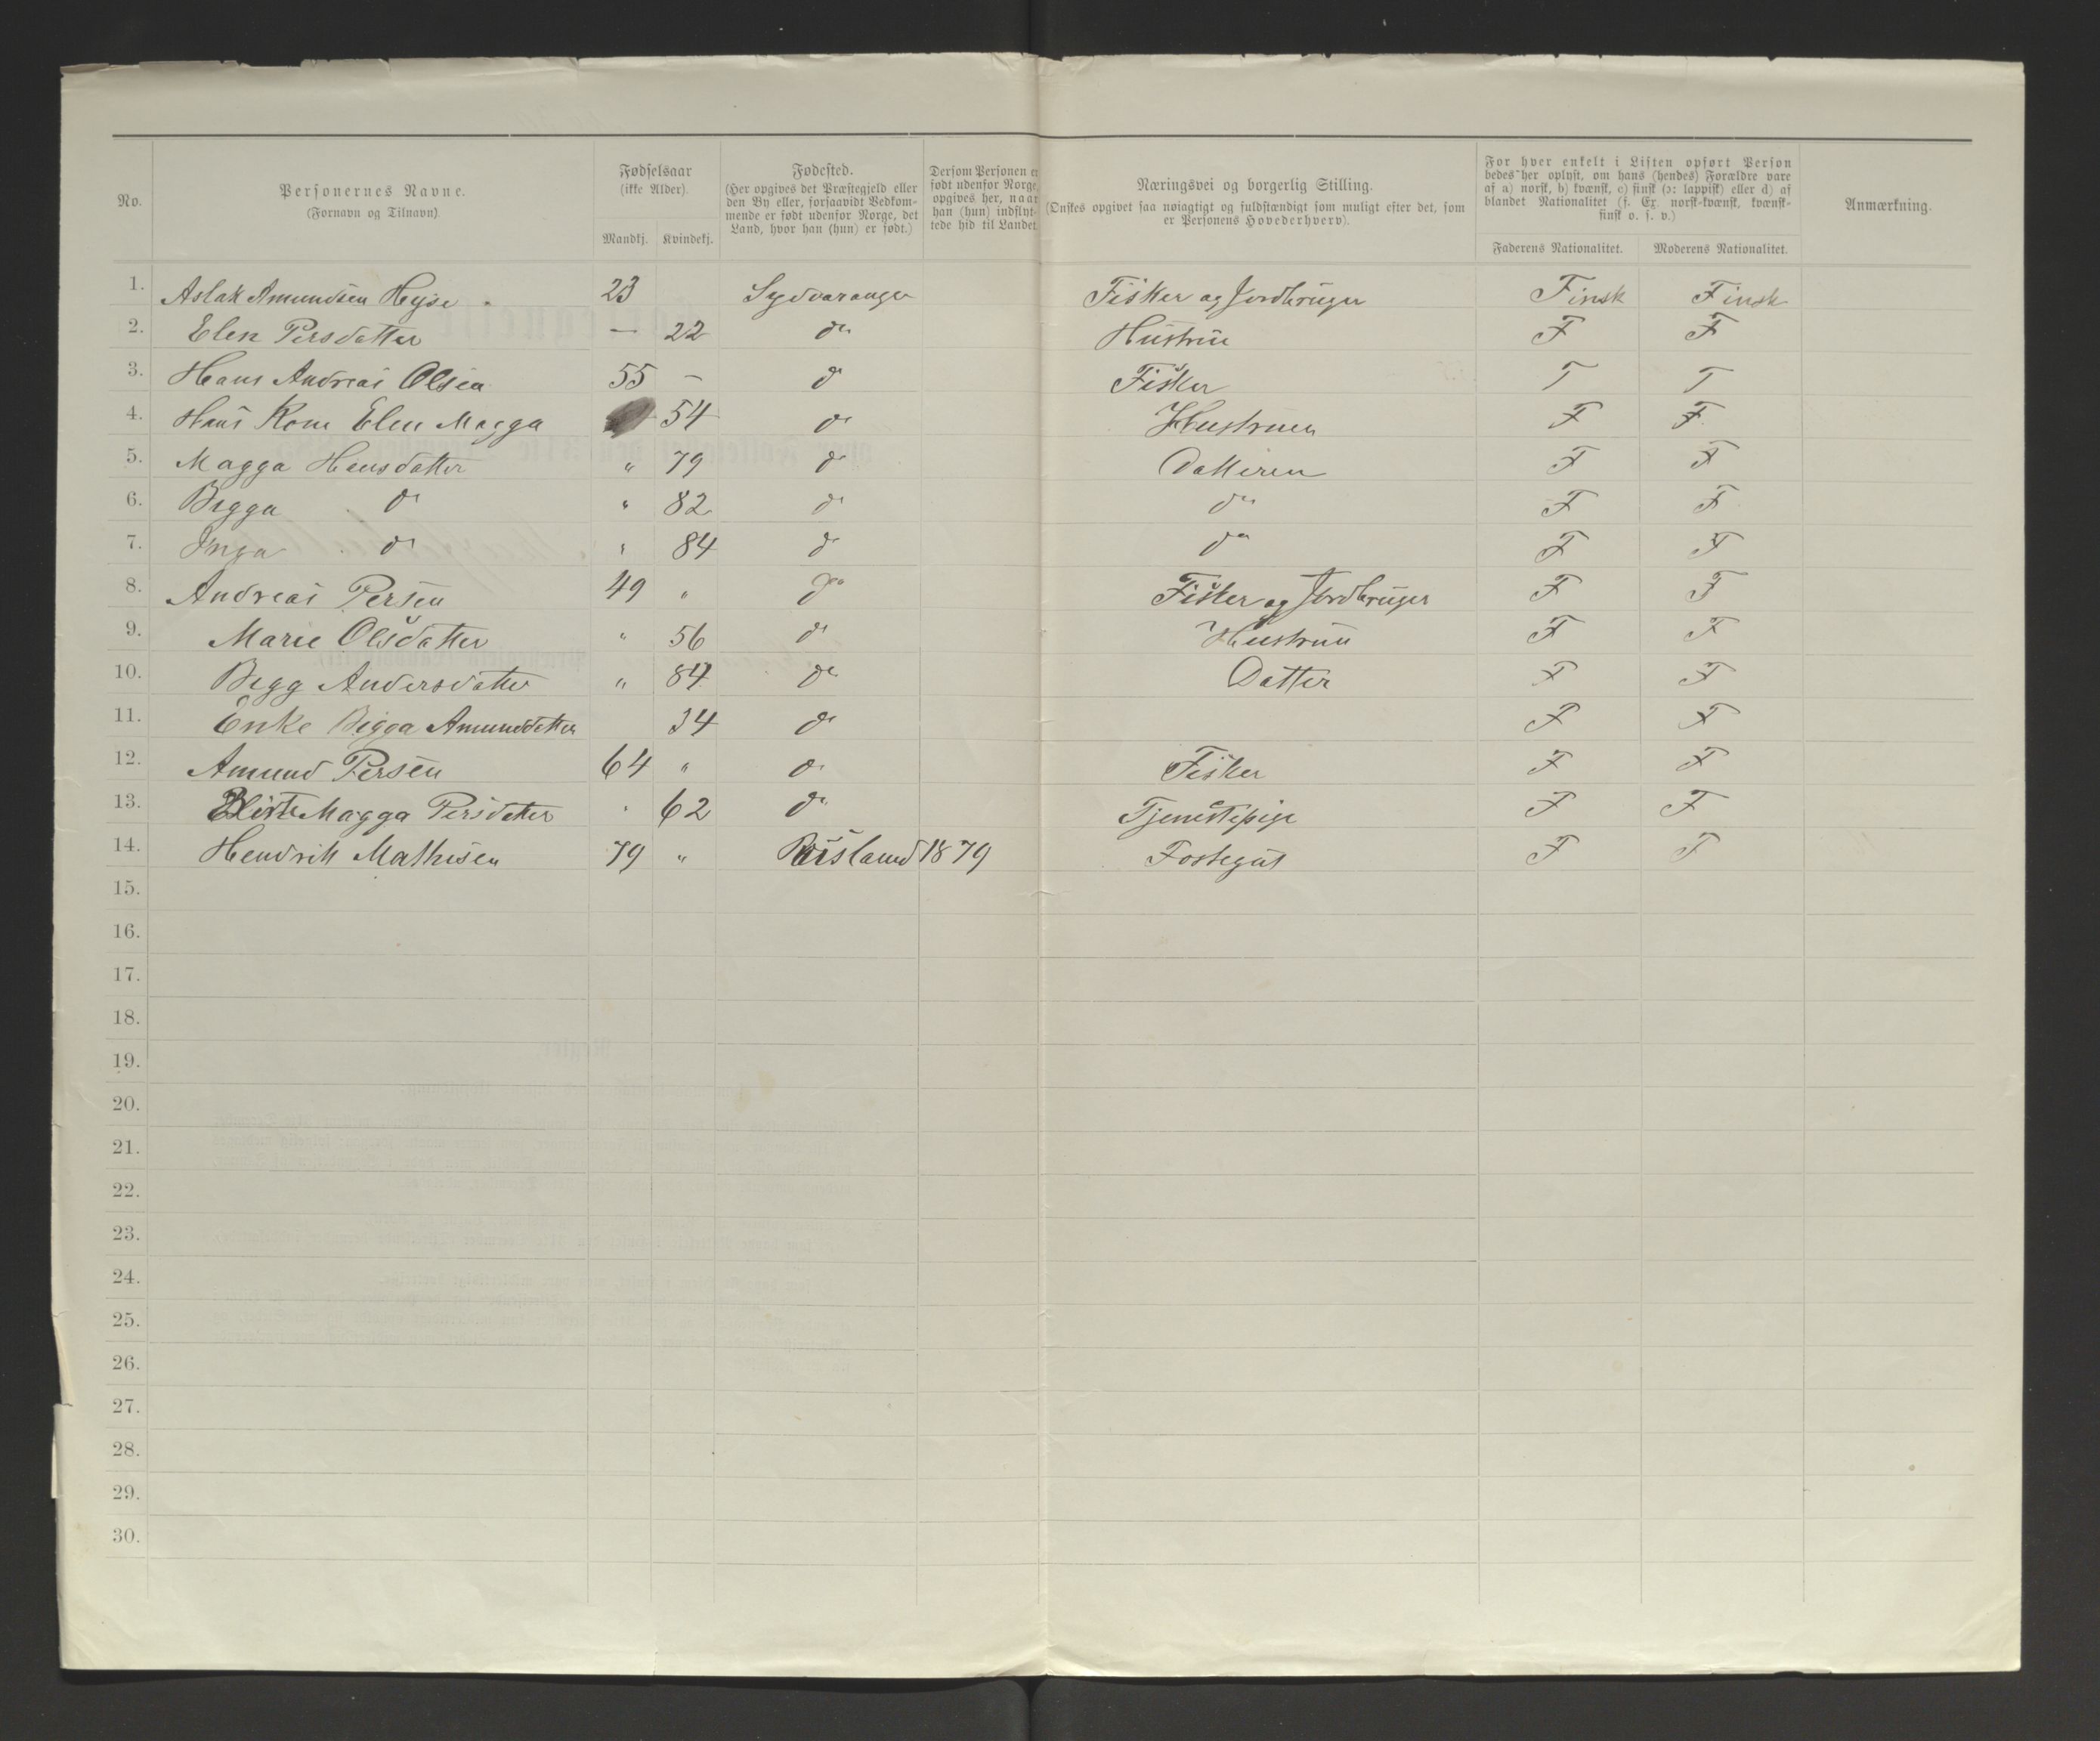 No.
Personernes Navne.
(Fornavn og Tilnavn).
Fødselsaar
(ikke Alder).
Mandkj. Kvindekj.
Fødested.
(Her opgives det Præstegjeld eller
den By eller, forsaavidt Vedkom-
mende er født udenfor Norge, det
Land, hvor han (hun) er født.)
Dersom Personen er
født udenfor Norge,
opgives her, naar
han (hun) indflyt-
tede hid til Landet.
Næringsvei og borgerlig Stilling.
(Ønskes opgivet saa nøiagtigt og fuldstændigt som muligt efter det, som
er Personens Hovederhverv).
For hver enkelt i Listen opført Person
bedes her oplyst, om hans (hendes) Forældre vare
af a) norsk, b) kvænsk, c) finsk (ɔ: lappisk) eller d) af
blandet Nationalitet (f. Ex. norsk-kvænsk, kvænsk-
finsk o. s. v.)
Faderens Nationalitet. Moderens Nationalitet.
Anmærkning.
1. Aslak Amundsen Hejse 23 Sydvaranger Fisker og Jordbruger Finsk Finsk
2. Elen Persdatter — 22 do Hustru F F
3. Hans Andreas Olsen 55 – do Fisker F F
4. Hans Kone Elen Magga 54 do Hustruen F F
5. Magga Hansdatter " 79 do Datteren F F
6. Bigga do " 82 do do F F
7. Inga do " 84 do do F F
8. Andreas Persen 49 " do Fisker og Jordbruger F F
9. Marie Olsdatter " 56 do Hustruu F F
10. Bigg Andersdatter " 84 do Datter F F
11. Enke Bigga Amundsdatter 34 do F F
12. Amund Persen 64 " do Fisker F F
13. Magga Persdatter " 62 do Tjenestepige F F
14. Hendrik Mathisen 79 " Rüsland 1879 Fostegut F F
15.
16.
17.
18.
19.
20.
21.
22.
23.
24.
25.
26.
27.
28.
29.
30.